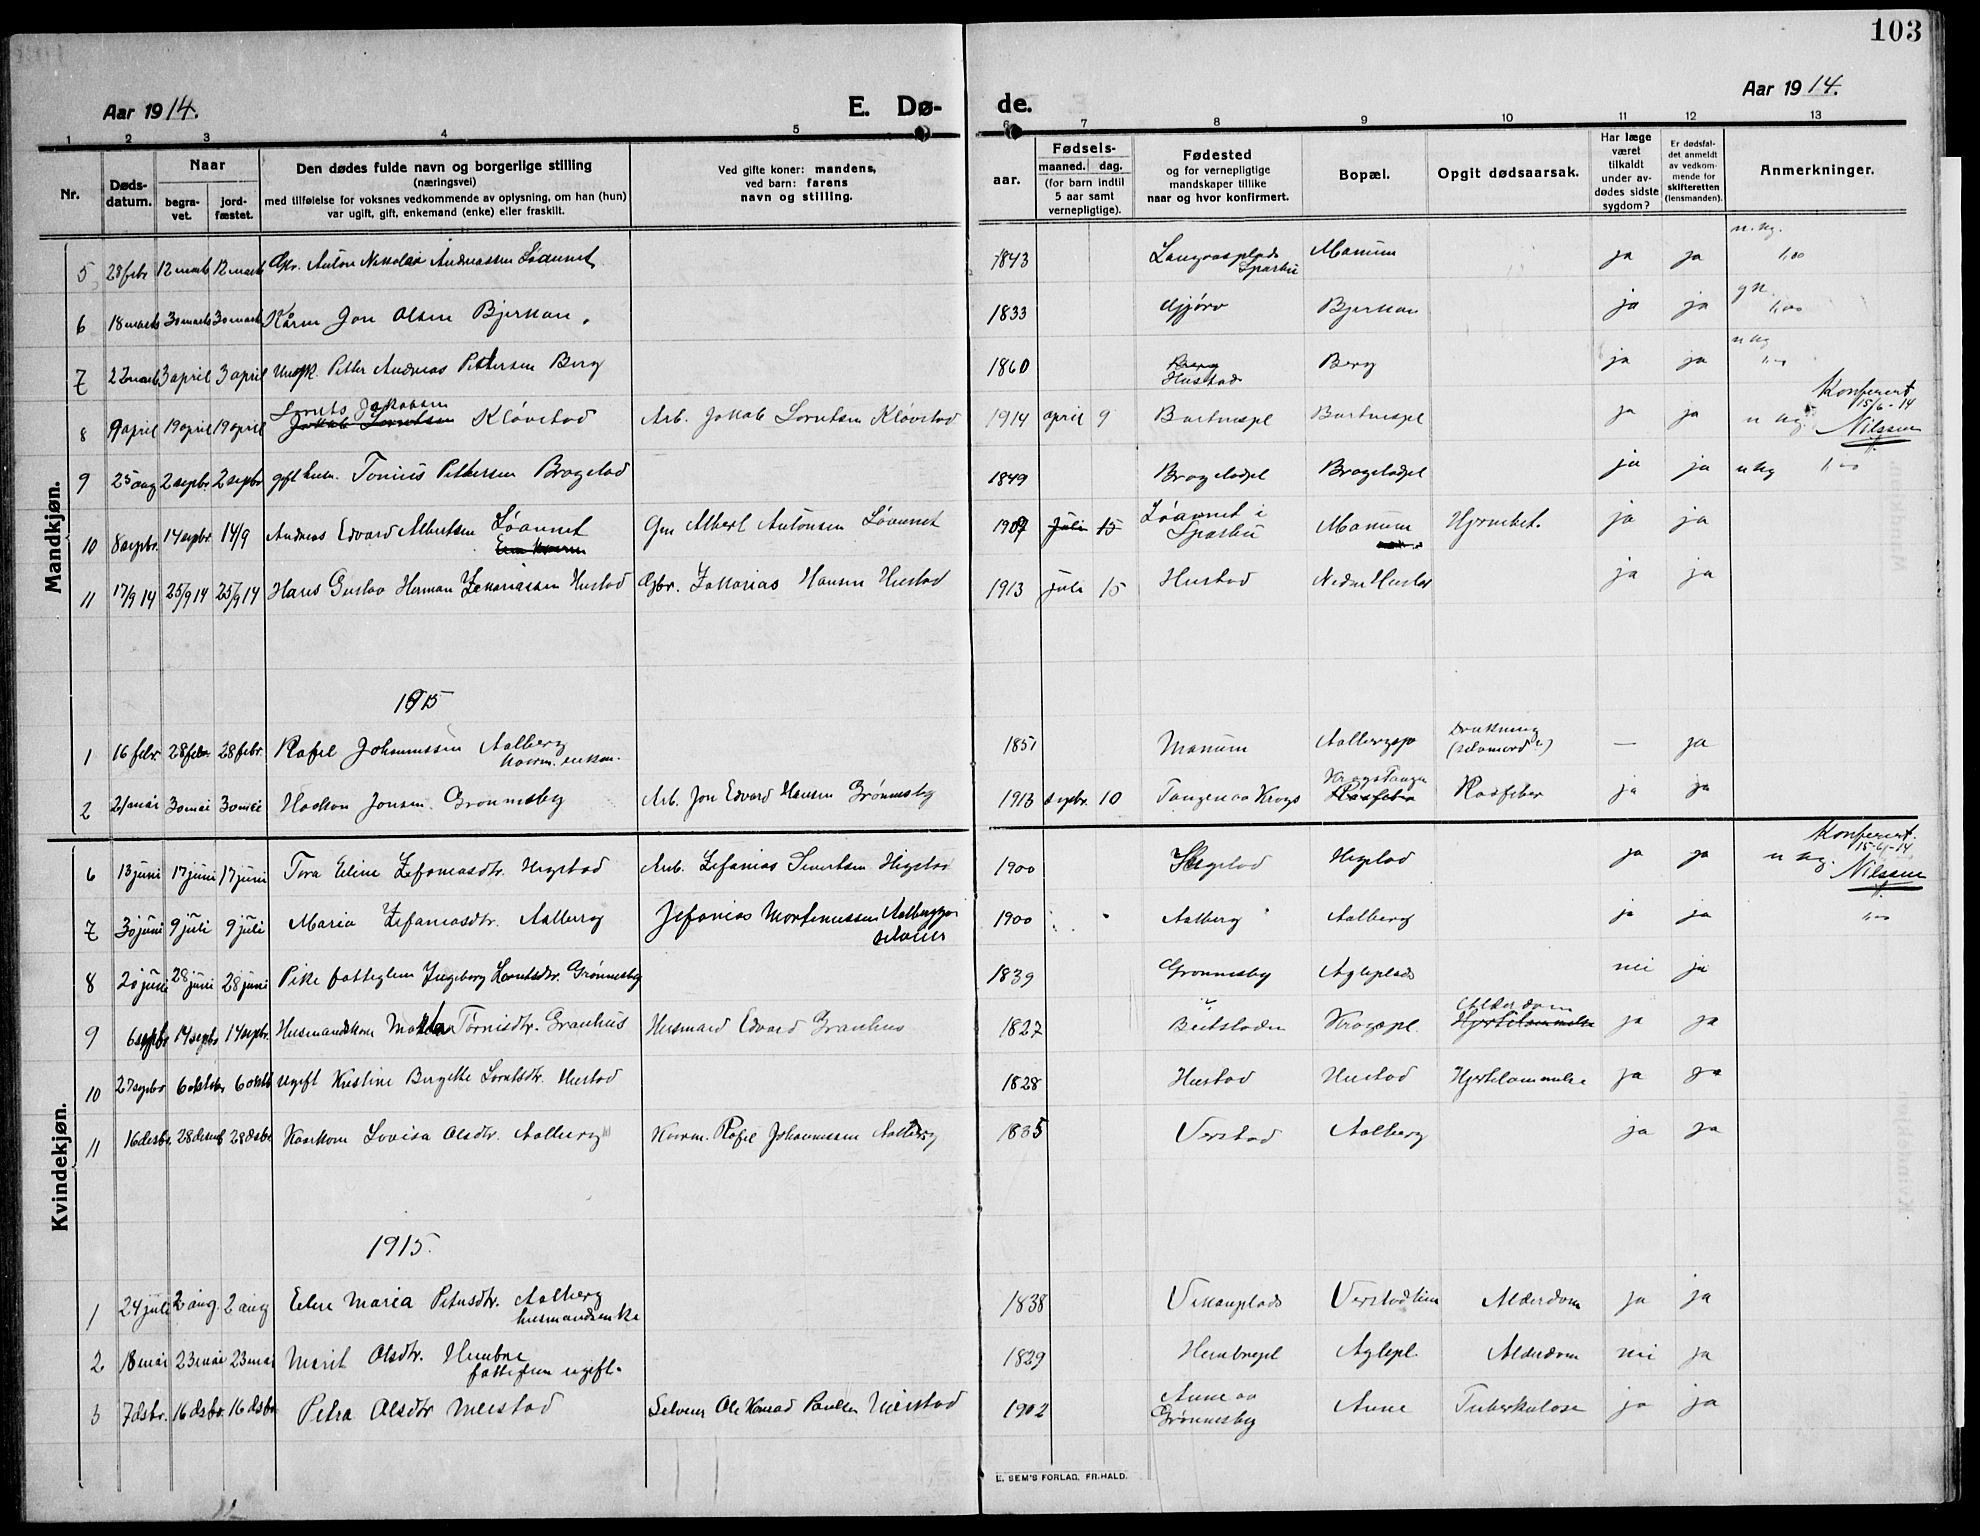 103
Aar 1914.
E. Dø-
de.
Aar 1914.
1 2 3 4 5 6 7 8 9 10 11 12 13
Nr.
Døds-
datum.
Naar
begra-
vet.
jord-
fæstet.
Den dødes fulde navn og borgerlige stilling
(næringsvei)
med tilføielse for voksnes vedkommende av oplysning, om han (hun)
var ugift, gift, enkemand (enke) eller fraskilt.
Ved gifte koner: mandens,
ved barn: farens
navn og stilling.
Fødsels-
aar.
maaned. dag.
(for barn indtil
5 aar samt
vernepligtige).
Fødested
og for vernepligtige
mandskaper tillike
naar og hvor konfirmert.
Bopæl.
Opgit dødsaarsak.
Har læge
været
tilkaldt
under av-
dødes sidste
sygdom?
Er dødsfal-
det anmeldt
av vedkom-
mende for
skifteretten
(lensmanden).
Anmerkninger.
Mandkjøn.
5 28 febr 12 marts 12 marts Gbr. Anton Nikolai Andreassen Løvannet 1843 Langvasplads Sparbu Manum ja ja 1,00
6 18 marts 30 marts 30 marts Kårm Jon Olsen Bjerkan. 1833 Gjørv Bjerkan ja ja 1,00
7 22 marts 3 april 3 april Petter Andreas Pettersen Berg 1860 Berg Hustad Berg ja ja 1,00
8 9 april 19 april 19 april Lornts Jakobsen Jakob Lorntsen Kløvstad Arb. Jakob Lorntsen Kløvstad 1914 april 9 Bartnespl Bartnespl ja ja Konferert 15/6-14 Nilssen
9 25 aug 2 sepbr. 2 sepbr gift husm. Tonius Pettersen Brogstad 1849 Brogstadpl Brogstadpl ja ja 1,00
10 8 sepbr. 14 sepbr. 14/9 Andreas Edvard Albertsen Løvannet Gm Albert Antonsen Løvannet 1907 juli 15 Løvannet i Sparbu Manum Hjernebet. ja ja
11 17/9 14 25/9 14 25/9 14 Hans Gustav Herman Zakariassen Hustad Gbr. Zakarias Hansen Hustad 1913 juli 15 Hustad Nedre Hustad ja ja
1915
1 16 febr. 28 febr. 28 febr. Rafel Johannessen Aalberg kaarm. enkem. 1851 Manum Aalbergsp Drukkning (selvmord?) — ja
2 21 mai 30 mai 30 mai Haakon Jonsen Grønnesby Arb. Jon Edvard Hansen Grønnesby 1913 sepbr. 10 Tangen av Krogs Krogs Tangen Rosfeber Rosfeber ja ja
Kvindekjøn.
6 13 juni 17 juni 17 juni Tora Eline Zefaniasdtr. Hegstad Arb. Zefanias Sivertsen Hegstad 1900 Hegstad Hegstad ja ja Konferert. 15-6-14 Nilssen
7 30 juni 9 juli 9 juli Maria Zefaniasdtr. Aalberg Zefanias Mortenussen Aalbergspl selveier 1900 Aalberg Aalberg ja ja 1,00
8 20 juni 28 juni 28 juni Pike fattiglem Ingeborg Lorntsdtr. Grønnesby 1839 Grønnesby Agleplads nei ja
9 6 sepbr 14 sepbr 14 sepbr. Husmandskone Tørrisdtr. Granhus Husmand Edvard Granhus 1827 Beitstaden Krogspl. Alderdom Hjertelammelse ja ja
10 27 sepbr 6 oktbr 6 oktb ugift Kristine Bergitte Lorntsdtr. Hustad 1828 Hustad Hustad Hjertelammelse ja ja
11 16 desbr. 28 desbr 28 desbr Kaarkone Lovisa Olsdtr. Aalberg Kaarm. Rafel Johannessen Aalberg 1835 Verstad Aalberg ja ja
1915.
1 24 juli 2 aug. 2 aug Eline Maria Petersdtr. Aalberg husmandsenke 1838 Vikanplads Verstadlien Alderdom ja ja
2 18 mai 23 mai 23 mai Marit Olsdtr. Hembre fattiglem ugift. 1829 Hembrepl Aglepl. Alderdom nei ja
3 7 dsbr. 16 dsbr. 16 dsbr Petra Olsdtr Meistad Selveier Ole Konrad Paulsen Meistad 1902 Aune av Grønnesby Aune Tuberkulose ja ja
E. SEM'S FORLAG, FR.HALD.